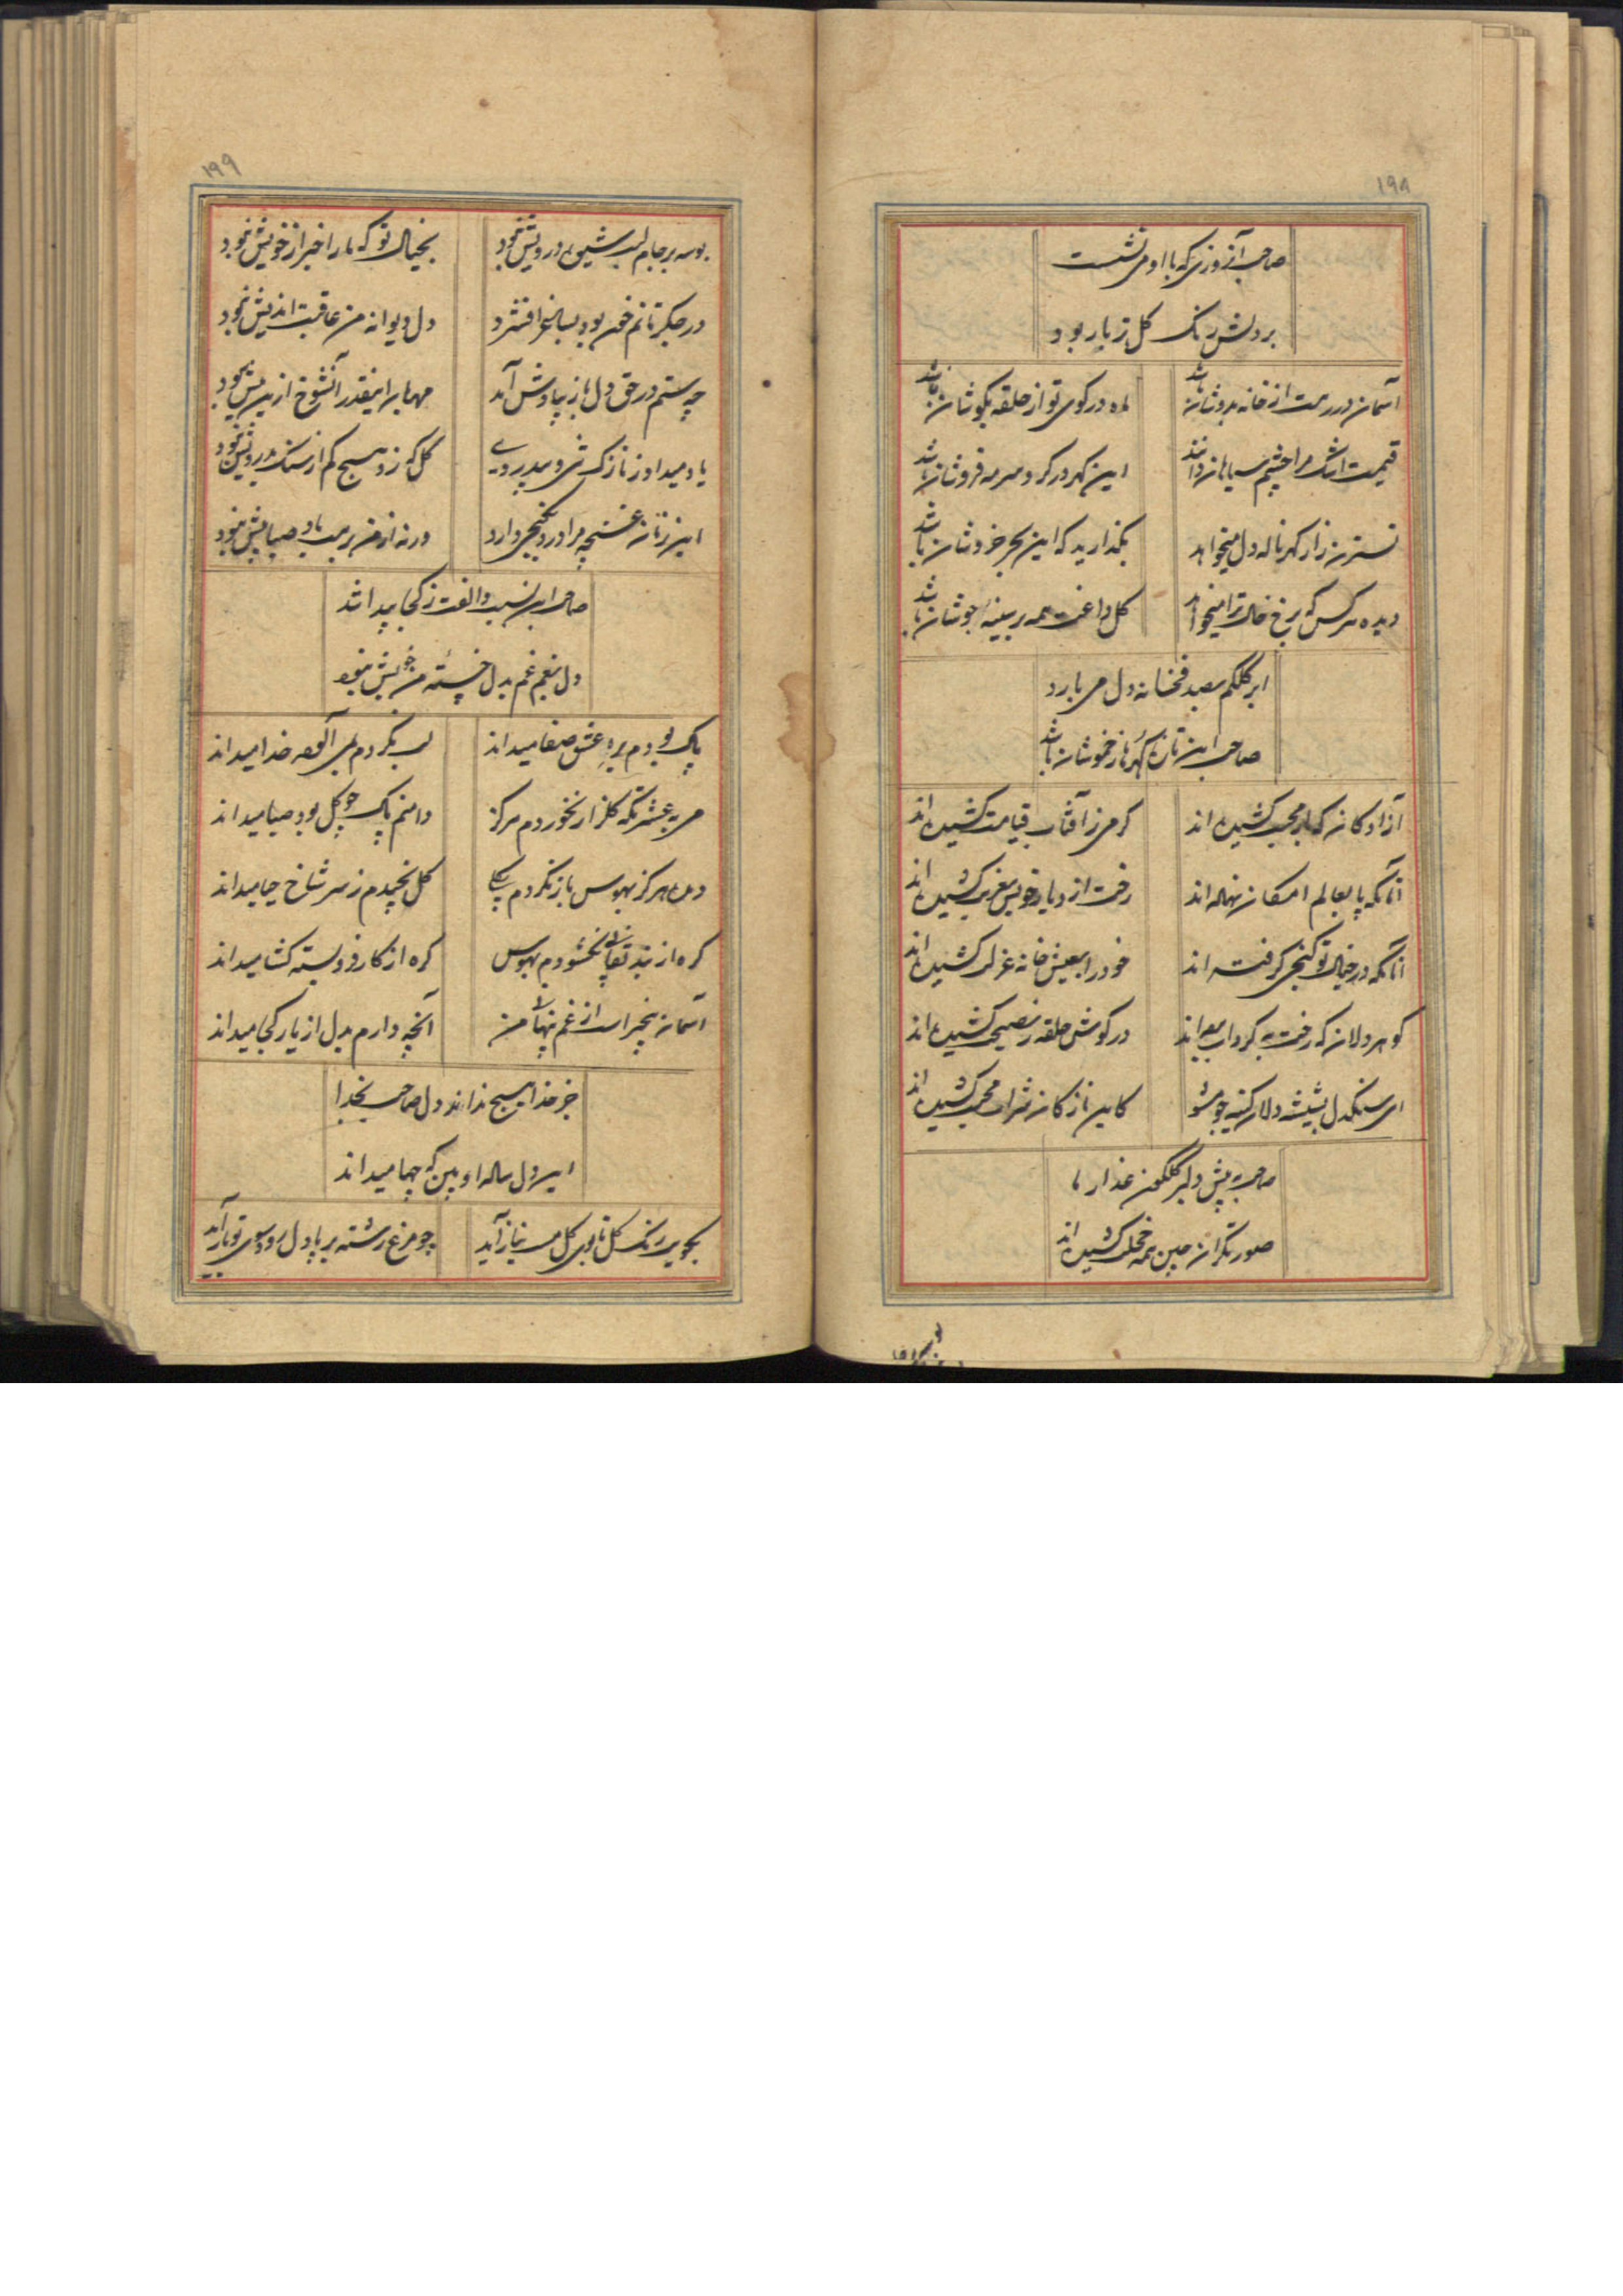 ۱۹۸
صاحب آنروزی که با او می نشست
بردلش رنگ گل زیبار بود
آسمان در رهت از خانه بدوشان باشد
ماه در کوی تو از حلقه بگوشان باشد
قیمت اشک مرا چشم سیاهان دانند
این گهر در گرو سرمه فروشان باشد
گهر ناله دل میخواهد
بگذارید که این بحر خروشان باشد
دیده هر کس که رخ خال ترا میخواهد
گل داغت همه بر سینه جوشان باشد
ابر کلکم بصد فخانه دل می بارد
صاحب این تازه گهر باز خموشان باشد
آزادگان که بار محبت کشیده اند
گرمی ز آفتاب قیامت کشیده اند
آنانکه پا بعالم امکان نهاده اند
رخت از دیار خویش بغربت کشیده اند
آنانکه در خیال تو کنجی گرفته اند
خود را بعیش خانه عزلت کشیده اند
گوهر دلان که رخت به گرداب برده اند
در گوش حلقه نصیحت کشیده اند
ای سنگدل بشیشه دلان کینه جو مشو
کاین نازکان شراب محبت کشیده اند
صاحب به پیش دلبر گلگون عذار ما
صورتگران چین همه خجلت کشیده اند
۱۹۹
بوسه بر جام لبت شیوه درویش نبود
بخیال تو که ما را خبر از خویش نبود
در جگر تا نم خون بود بساغر افشرد
دل دیوانه من عاقبت اندیش نبود
چه ستم در حق دل باز بیادش آمد
مهربان اینقدر آنشوخ ازین پیش نبود
یاد میداد ز نازک
گل که زد هیچ کم از سنگ بدرویش نبود
این زمان غنچه مرا در دکنجی دارد
ورنه از من بر میت باد صبا پیش نبود
صاحب این نسبت و الفت ز کجا پیدا شد
دل بغم غم بدل خسته من خویش نبود
پاک بودم بره عشق صفا میداند
لب نکردم بمی آلوده خدا میداند
می به عشرتکه گلزار نخوردم هرگز
دامنم پاک چو گل بود صبا میداند
دیده هرگز بهوس باز نکردم بگلی
گل نچیدم ز سر شاخ حیا میداند
گره از بند نقابی نگشودم بهوس
گره از کار فرو بسته گشا میداند
آسمان بیخبر است از غم پنهانی من
آنچه دارم بدل از یار کجا میداند
جز خدا هیچ نداند دل صاحب بخدا
ای دل ساله او بین که چها میداند
بجوی رنگ گل تا بوی گل مست نیاز آید
چو مرغ رشته بر پا دل رود سوی تو باز آید